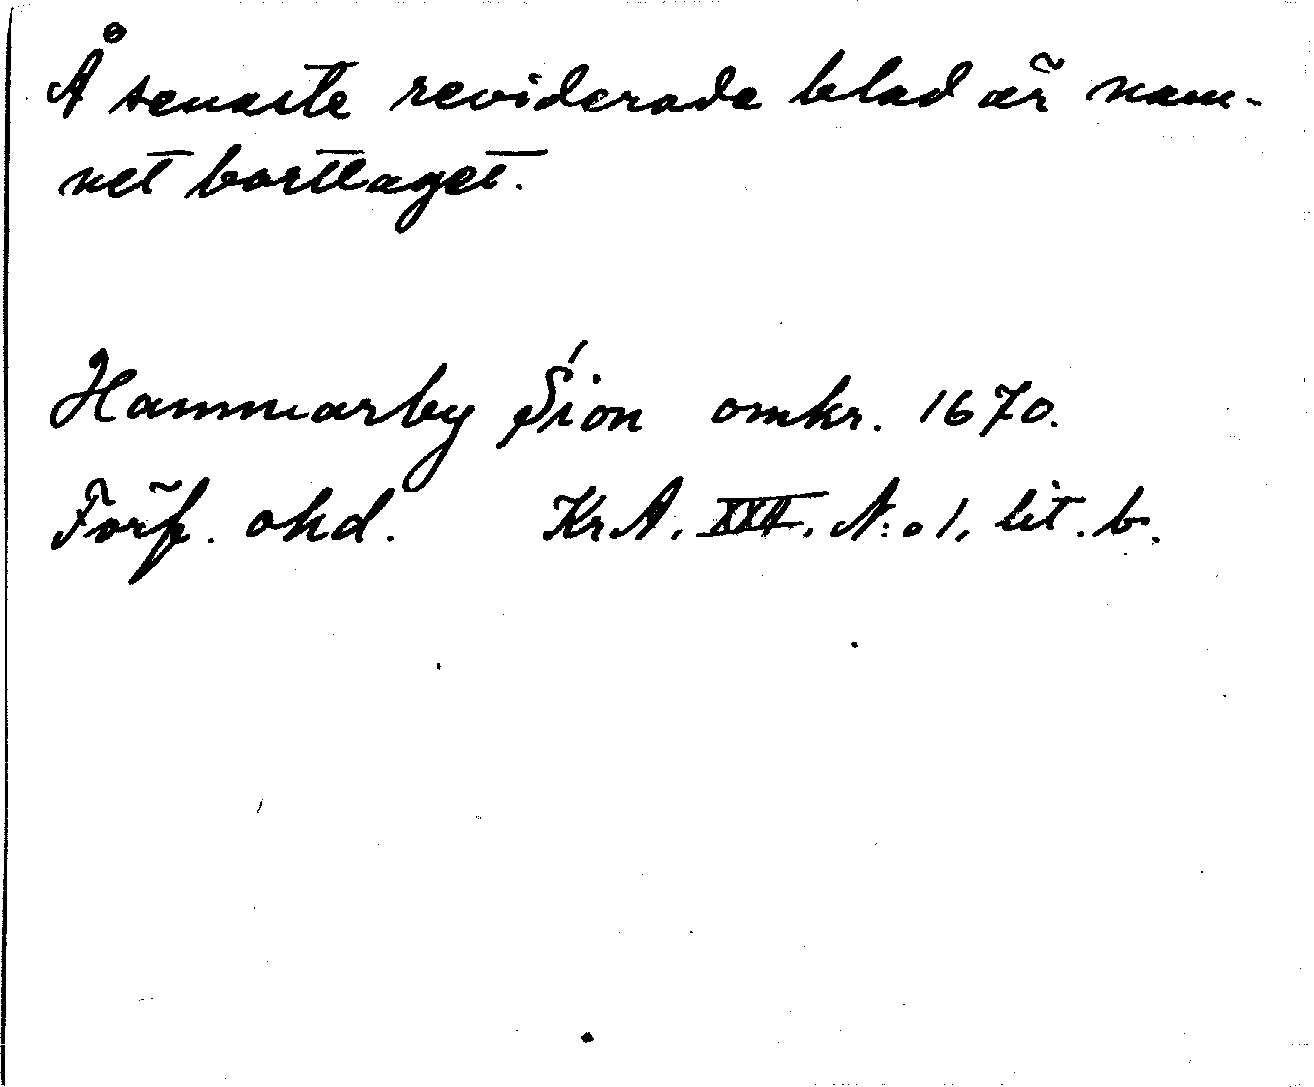 Å senaste reviderade blad är nam-
net borttaget.
Hammarby Siön omkr. 1670.
Förf. okd. Kr.A. XXII. N:o 1, lit. b.